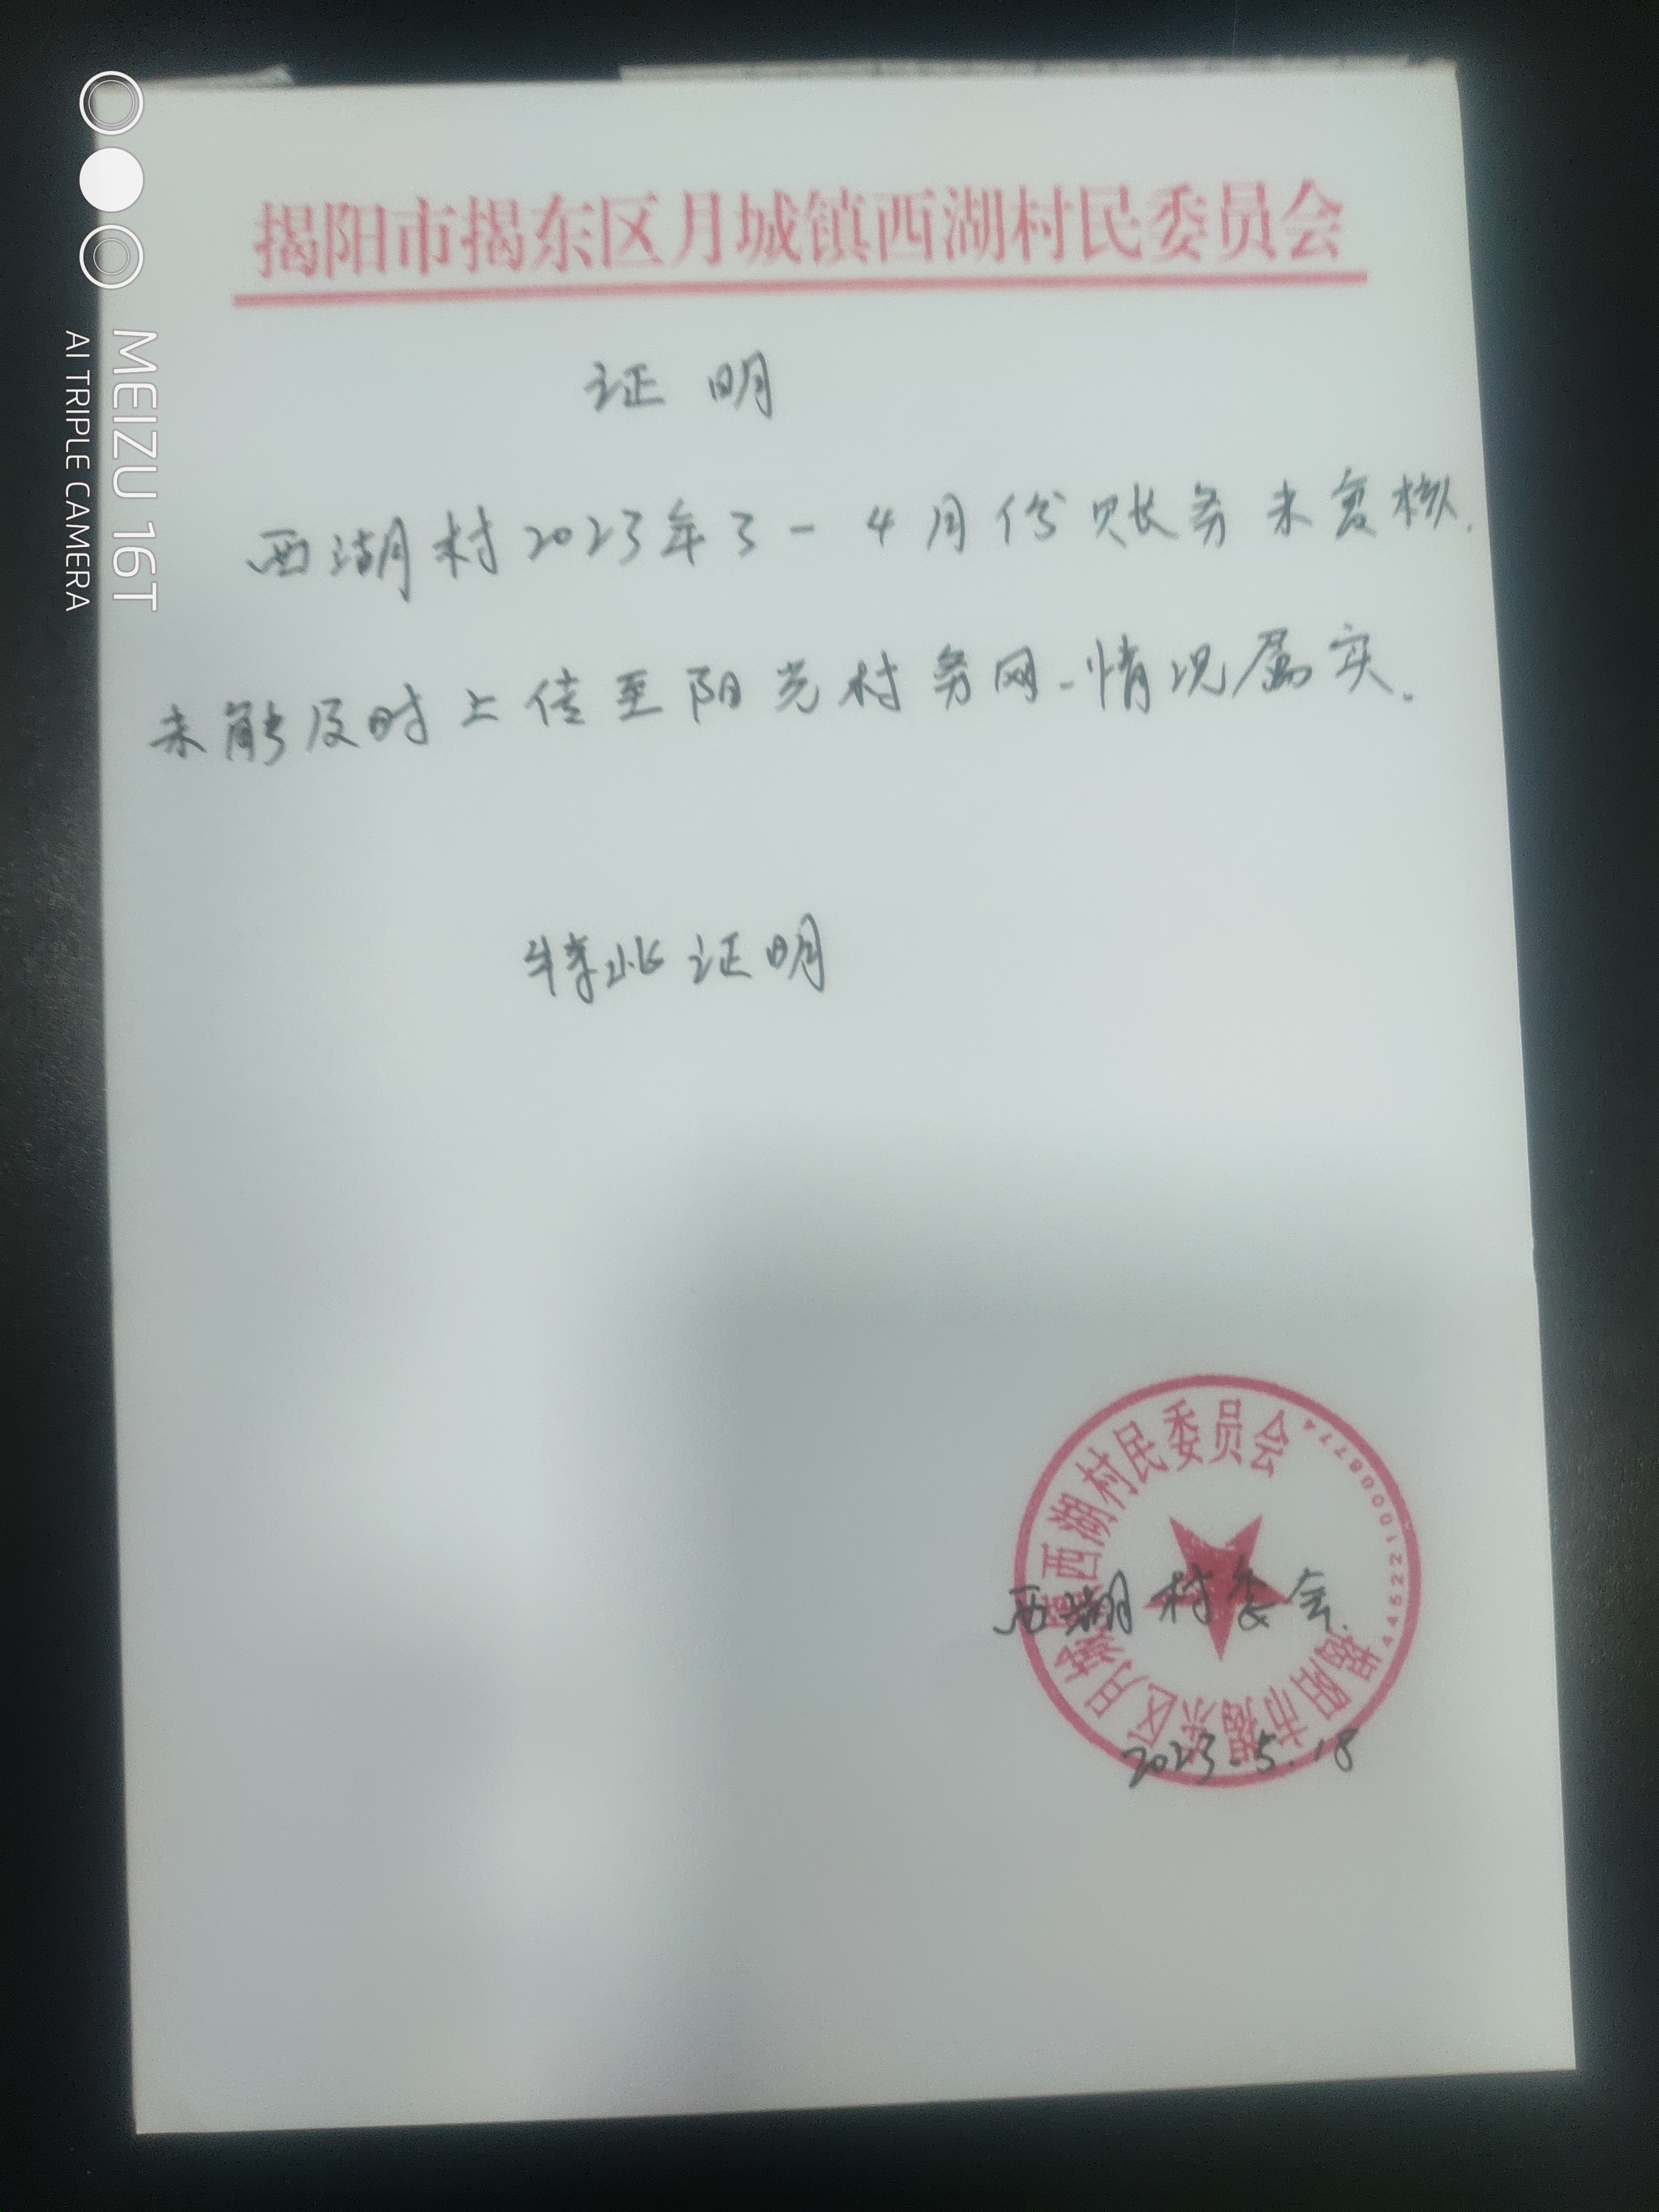 揭阳市揭东区月城镇西湖村民委员会
证明
西湖村2023年3-4月份账务未复核,
未能及时上传至阳光村务网-情况属实。
特此证明
西湖村委会.
2023.5.18
揭阳市揭东区月城镇西湖村民委员会
MEIZU 16T
AI TRIPLE CAMERA